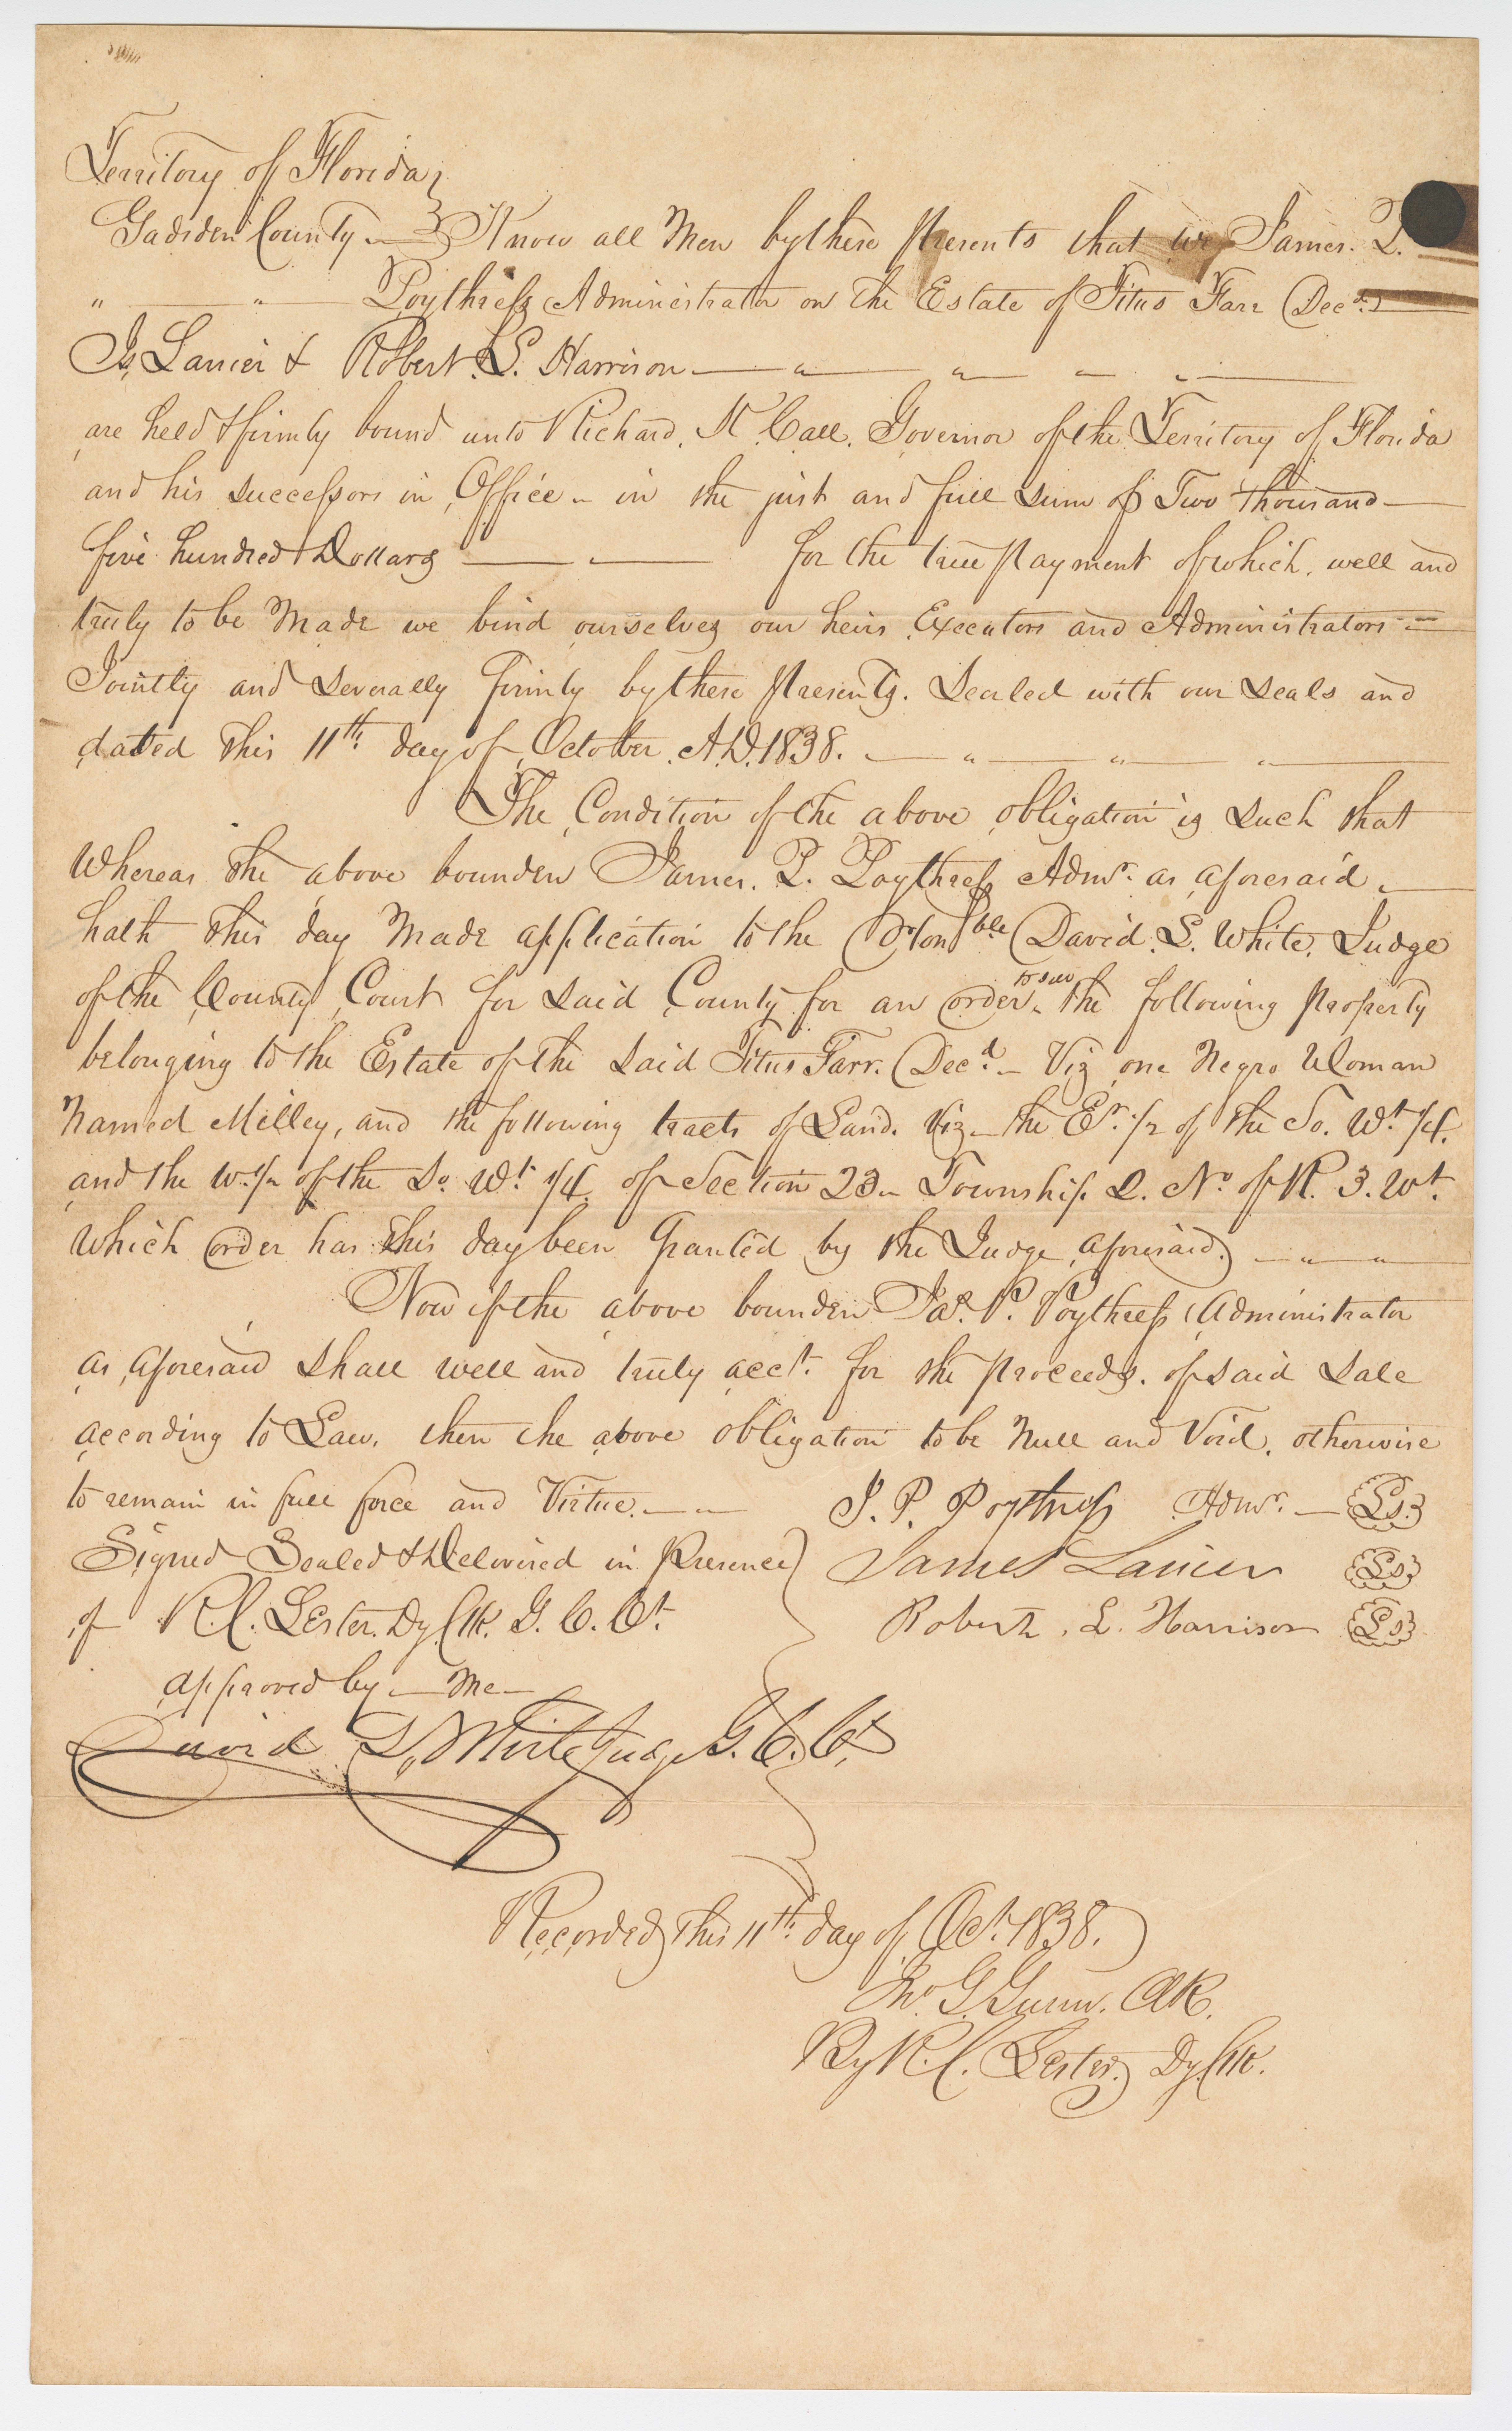 Territory of Florida }
Gadsden County } Know all Men by these Presents that we James. P.
" " Poythress Administrator on the Estate of Titus Farr Decd.
Js. Lanier & Robert. L. Harrison " " "
are held & firmly bound unto Richard. K. Call. Governor of the Territory of Florida
and his successors in Office - in the just and full sum of Two thousand
five hundred Dollars for the true payment of which. well and
truly to be Made we bind ourselves our heirs Executors and Administrators
Jointly and severally firmly by these presents. Sealed with our seals and
dated this 11th. day of October. A.D. 1838. " " "
The Condition of the above obligation is such that
Whereas the above bounden James. P. Poythress Admr. as aforesaid
hath this day Made application to the Honble David. L. White. Judge
of the County Court for said County for an order to sell the following property
belonging to the Estate of the said Titus Farr. Decd. - Viz one Negro Woman
Named Milley, and the following tracts of Land. Viz - the Et. 1/2 of the So. Wt. 1/4.
and the W. 1/2 of the So. Wt. 1/4. of Section 23 - Township 2. No. of R. 3. Wt.
which order has this day been Granted by the Judge aforesaid. " "
Now if the above bounden Jas. P. Poythress Administrator
as aforesaid shall well and truly acct. for the proceeds. of said sale
according to Law. then the above obligation to be Null and Void. otherwise
to remain in full force and Virtue. J. P. Poythress Admr. Ls.
Signed Sealed & Delivered in Presence } James Lanier Ls
of R. C. Lester. Dy. Clk. G. C. Ct. Robert. L. Harrison Ls
approved by - Me -
David L. White Judge G. C. Ct.
Recorded this 11th. day of Oct. 1838.
Jno. G. Gunn. Clk.
By R. C. Lester. Dy. Clk.